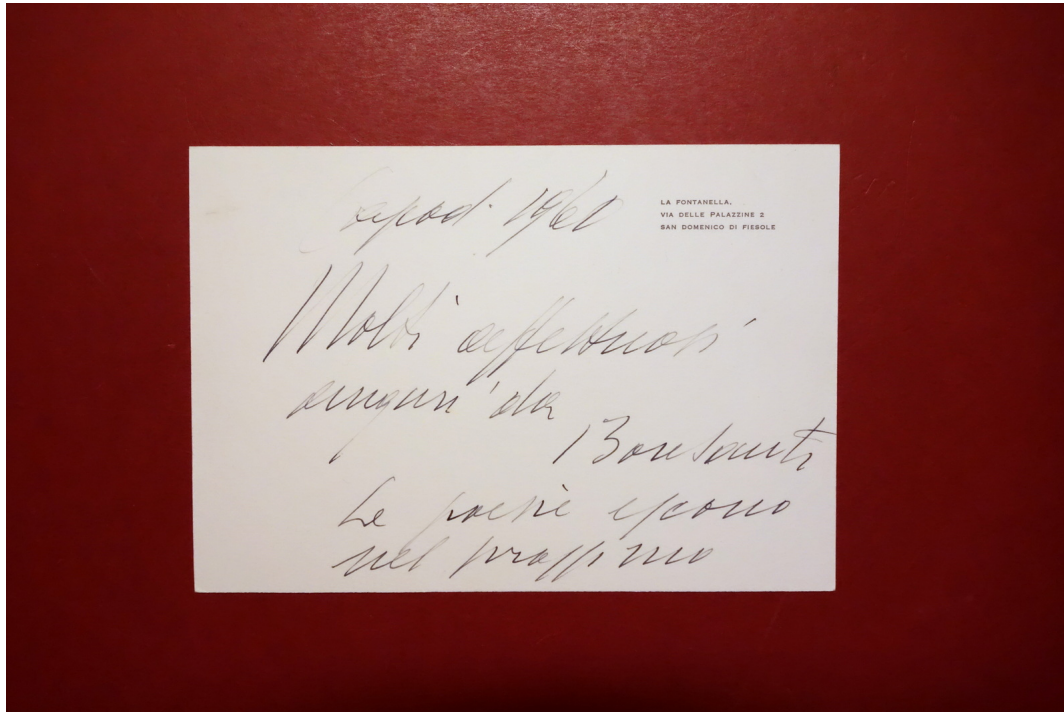 Capod. 1960
LA FONTANELLA,
VIA DELLE PALAZZINE 2
SAN DOMENICO DI FIESOLE
Molti affettuosi
auguri da
Bonsanti
Le poesie escono
nel prossimo